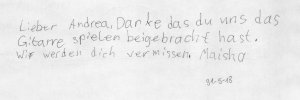 Lieber Andrea, Danke das du uns das
Gitarre spielen beigebracht hast.
Wir werden dich vermissen. Maisha
91-5-18